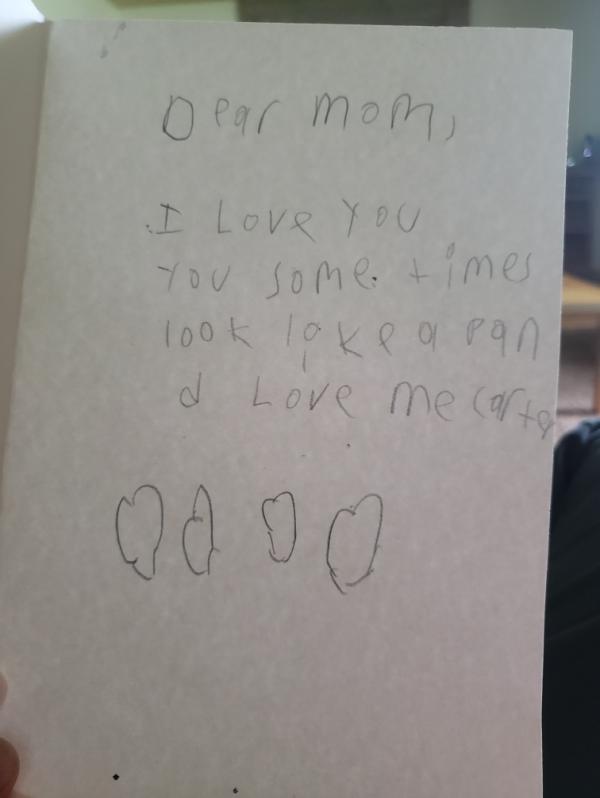 Dear mom,
I Love You
You some times
look like a pan
d Love me Carter